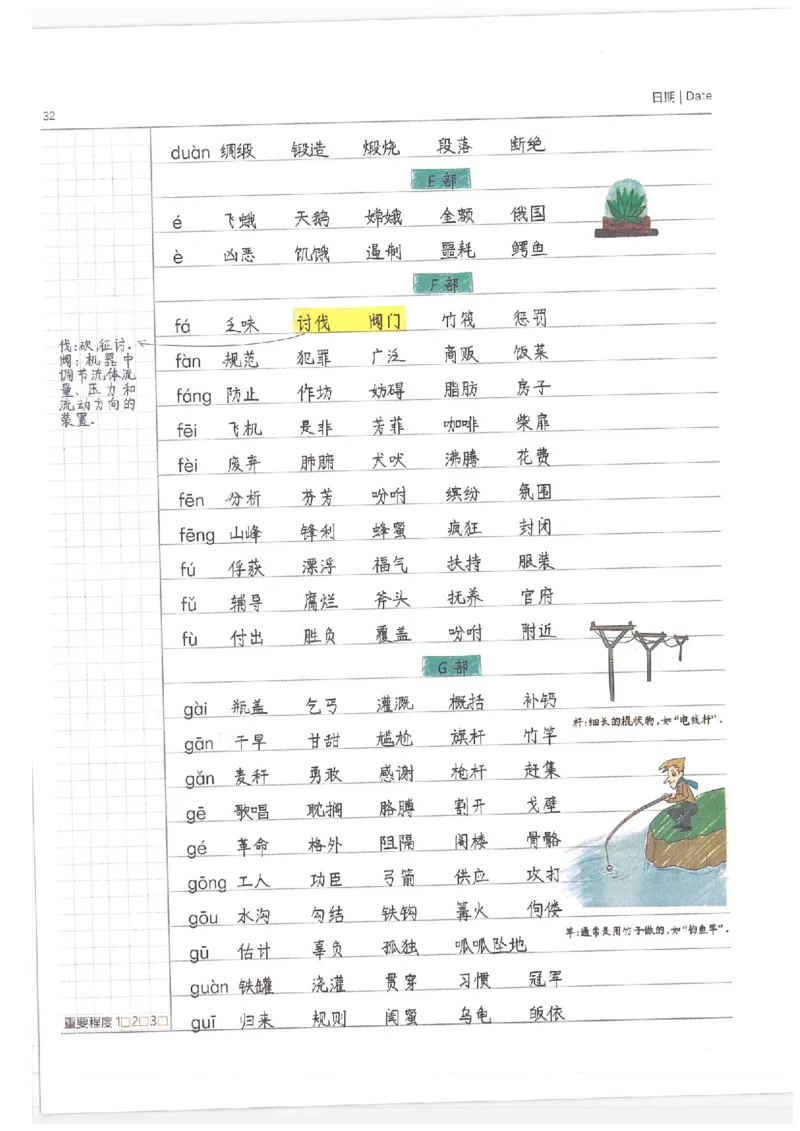 日期 | Date
32
duàn 绸缎 锻造 煅烧 段落 断绝
E部
é 飞蛾 天鹅 嫦娥 金额 俄国
è 凶恶 饥饿 遏制 噩耗 鳄鱼
F部
fá 乏味 讨伐 阀门 竹筏 惩罚
伐:砍,征讨。
阀:机器中
调节流体流
量、压力和
流动方向的
装置。
fàn 规范 犯罪 广泛 商贩 饭菜
fáng 防止 作坊 妨碍 脂肪 房子
fēi 飞机 是非 芳菲 咖啡 柴扉
fèi 废弃 肺腑 犬吠 沸腾 花费
fēn 分析 芬芳 吩咐 缤纷 氛围
fēng 山峰 锋利 蜂蜜 疯狂 封闭
fú 俘获 漂浮 福气 扶持 服装
fǔ 辅导 腐烂 斧头 抚养 官府
fù 付出 胜负 覆盖 吩咐 附近
G部
gài 瓶盖 乞丐 灌溉 概括 补钙
杆:细长的棍状物,如“电线杆”.
gān 干旱 甘甜 尴尬 旗杆 竹竿
gǎn 麦秆 勇敢 感谢 枪杆 赶集
gē 歌唱 耽搁 胳膊 割开 戈壁
gé 革命 格外 阻隔 阁楼 骨骼
gōng 工人 功臣 弓箭 供应 攻打
gōu 水沟 勾结 铁钩 篝火 佝偻
竿:通常是用竹子做的,如“钓鱼竿”.
gū 估计 辜负 孤独 呱呱坠地
guàn 铁罐 浇灌 贯穿 习惯 冠军
guī 归来 规则 闺蜜 乌龟 皈依
重要程度 1□2□3□